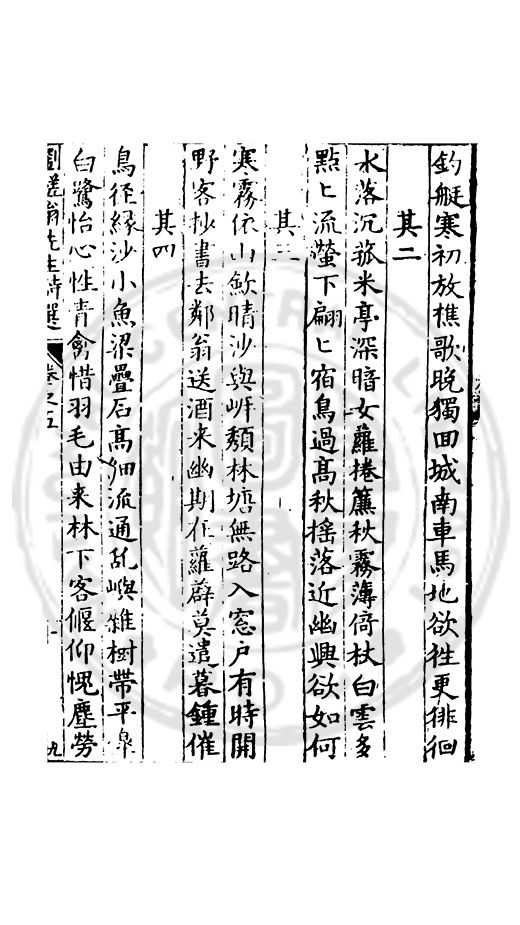 釣艇寒初放樵歌晚獨回城南車馬地欲徃更徘徊
其二
水落沉菰米亭深暗女蘿捲簾秋霧薄倚杖白雲多
點匕流螢下翩匕宿鳥過髙秋揺落近幽興欲如何
其三
寒霧依山歛晴沙與岍頽林塘無路入窓户有時開
野客抄書去鄰翁送酒来幽期在蘿薜莫遣暮鍾催
其四
鳥徑緣沙小魚梁疊石髙細流通乱嶼雜樹帶平皋
白鷺怡心性青禽惜羽毛由来林下客偃仰愧塵勞
劉蓑翁先生詩選 卷之五 九